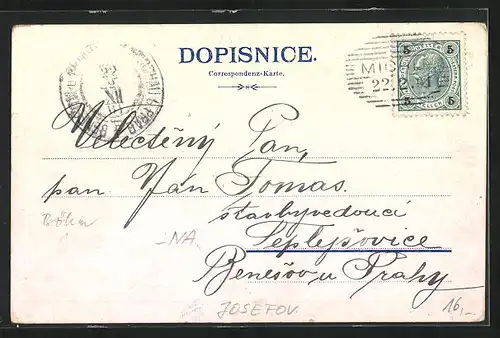 DOPISNICE.
Correspondenz-Karte.
5 5
MIC
22.12
5 5
Velectěný Pan,
pan Jan Tomas.
stavbyvedoucí
Böhm
NA
Teplejšovice
Benešov u Prahy
JOSEFOV.
16,-